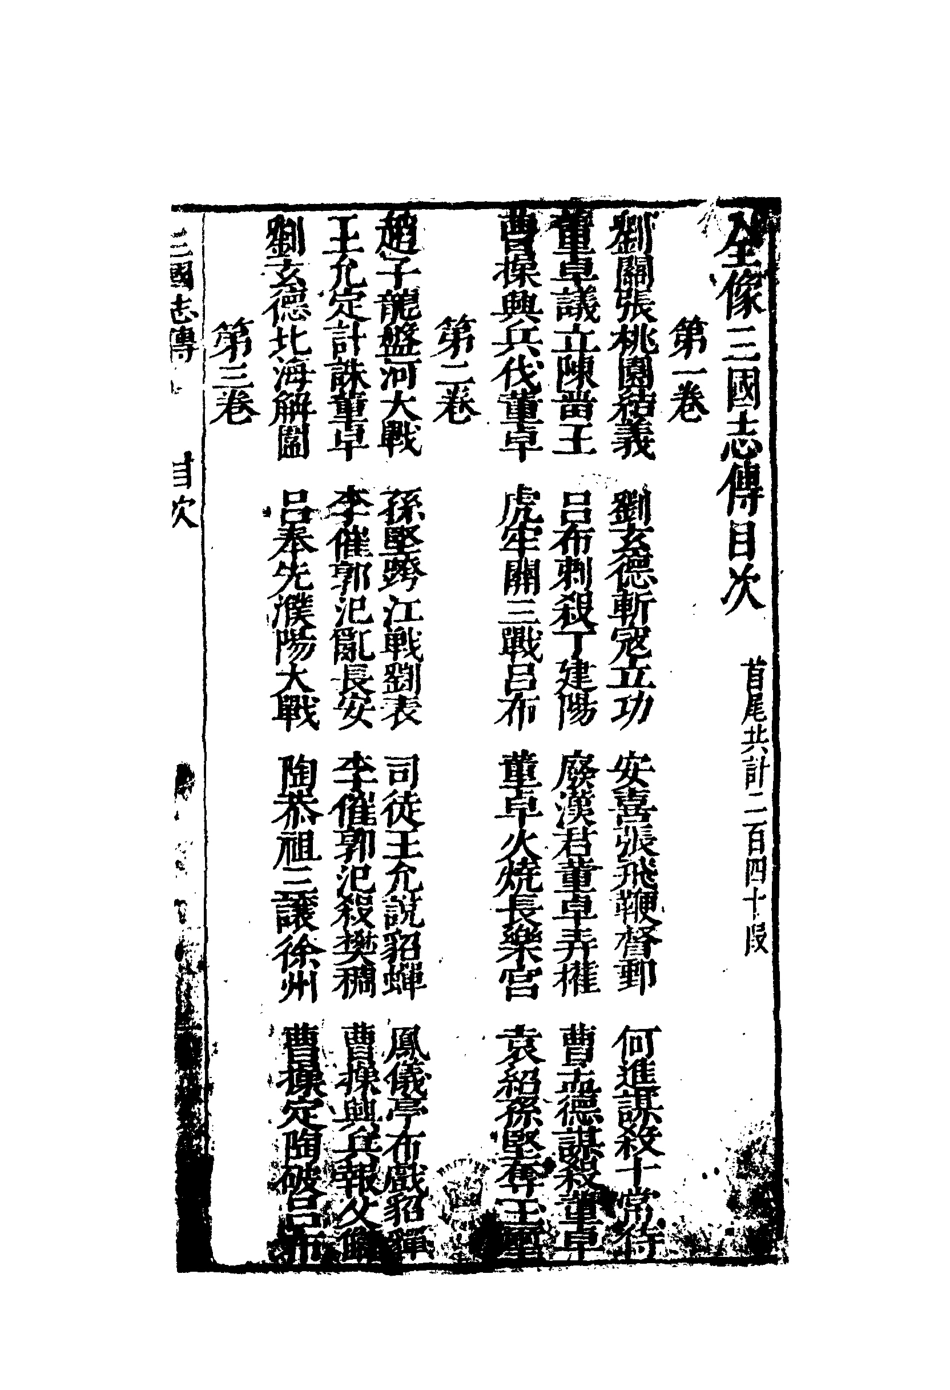 全像三國志傳目次 首尾共計二百四十段
第一卷
劉關張桃園結義 劉玄德斬寇立功 安喜張飛鞭督郵 何進謀殺十常侍
董卓議立陳畱王 呂布刺殺丁建陽 廢漢君董卓弄權 曹孟德謀殺董卓
曹操興兵伐董卓 虎牢關三戰呂布 董卓火燒長樂宮 袁紹孫堅奪玉璽
第二卷
趙子龍盤河大戰 孫堅跨江戰劉表 司徒王允説貂蟬 鳳儀亭布戲貂蟬
王允定計誅董卓 李傕郭汜亂長安 李傕郭汜殺樊稠 曹操興兵報父讐
劉玄德北海解圍 呂奉先濮陽大戰 陶恭祖三讓徐州 曹操定陶破呂布
第三卷
三國志傳 目次